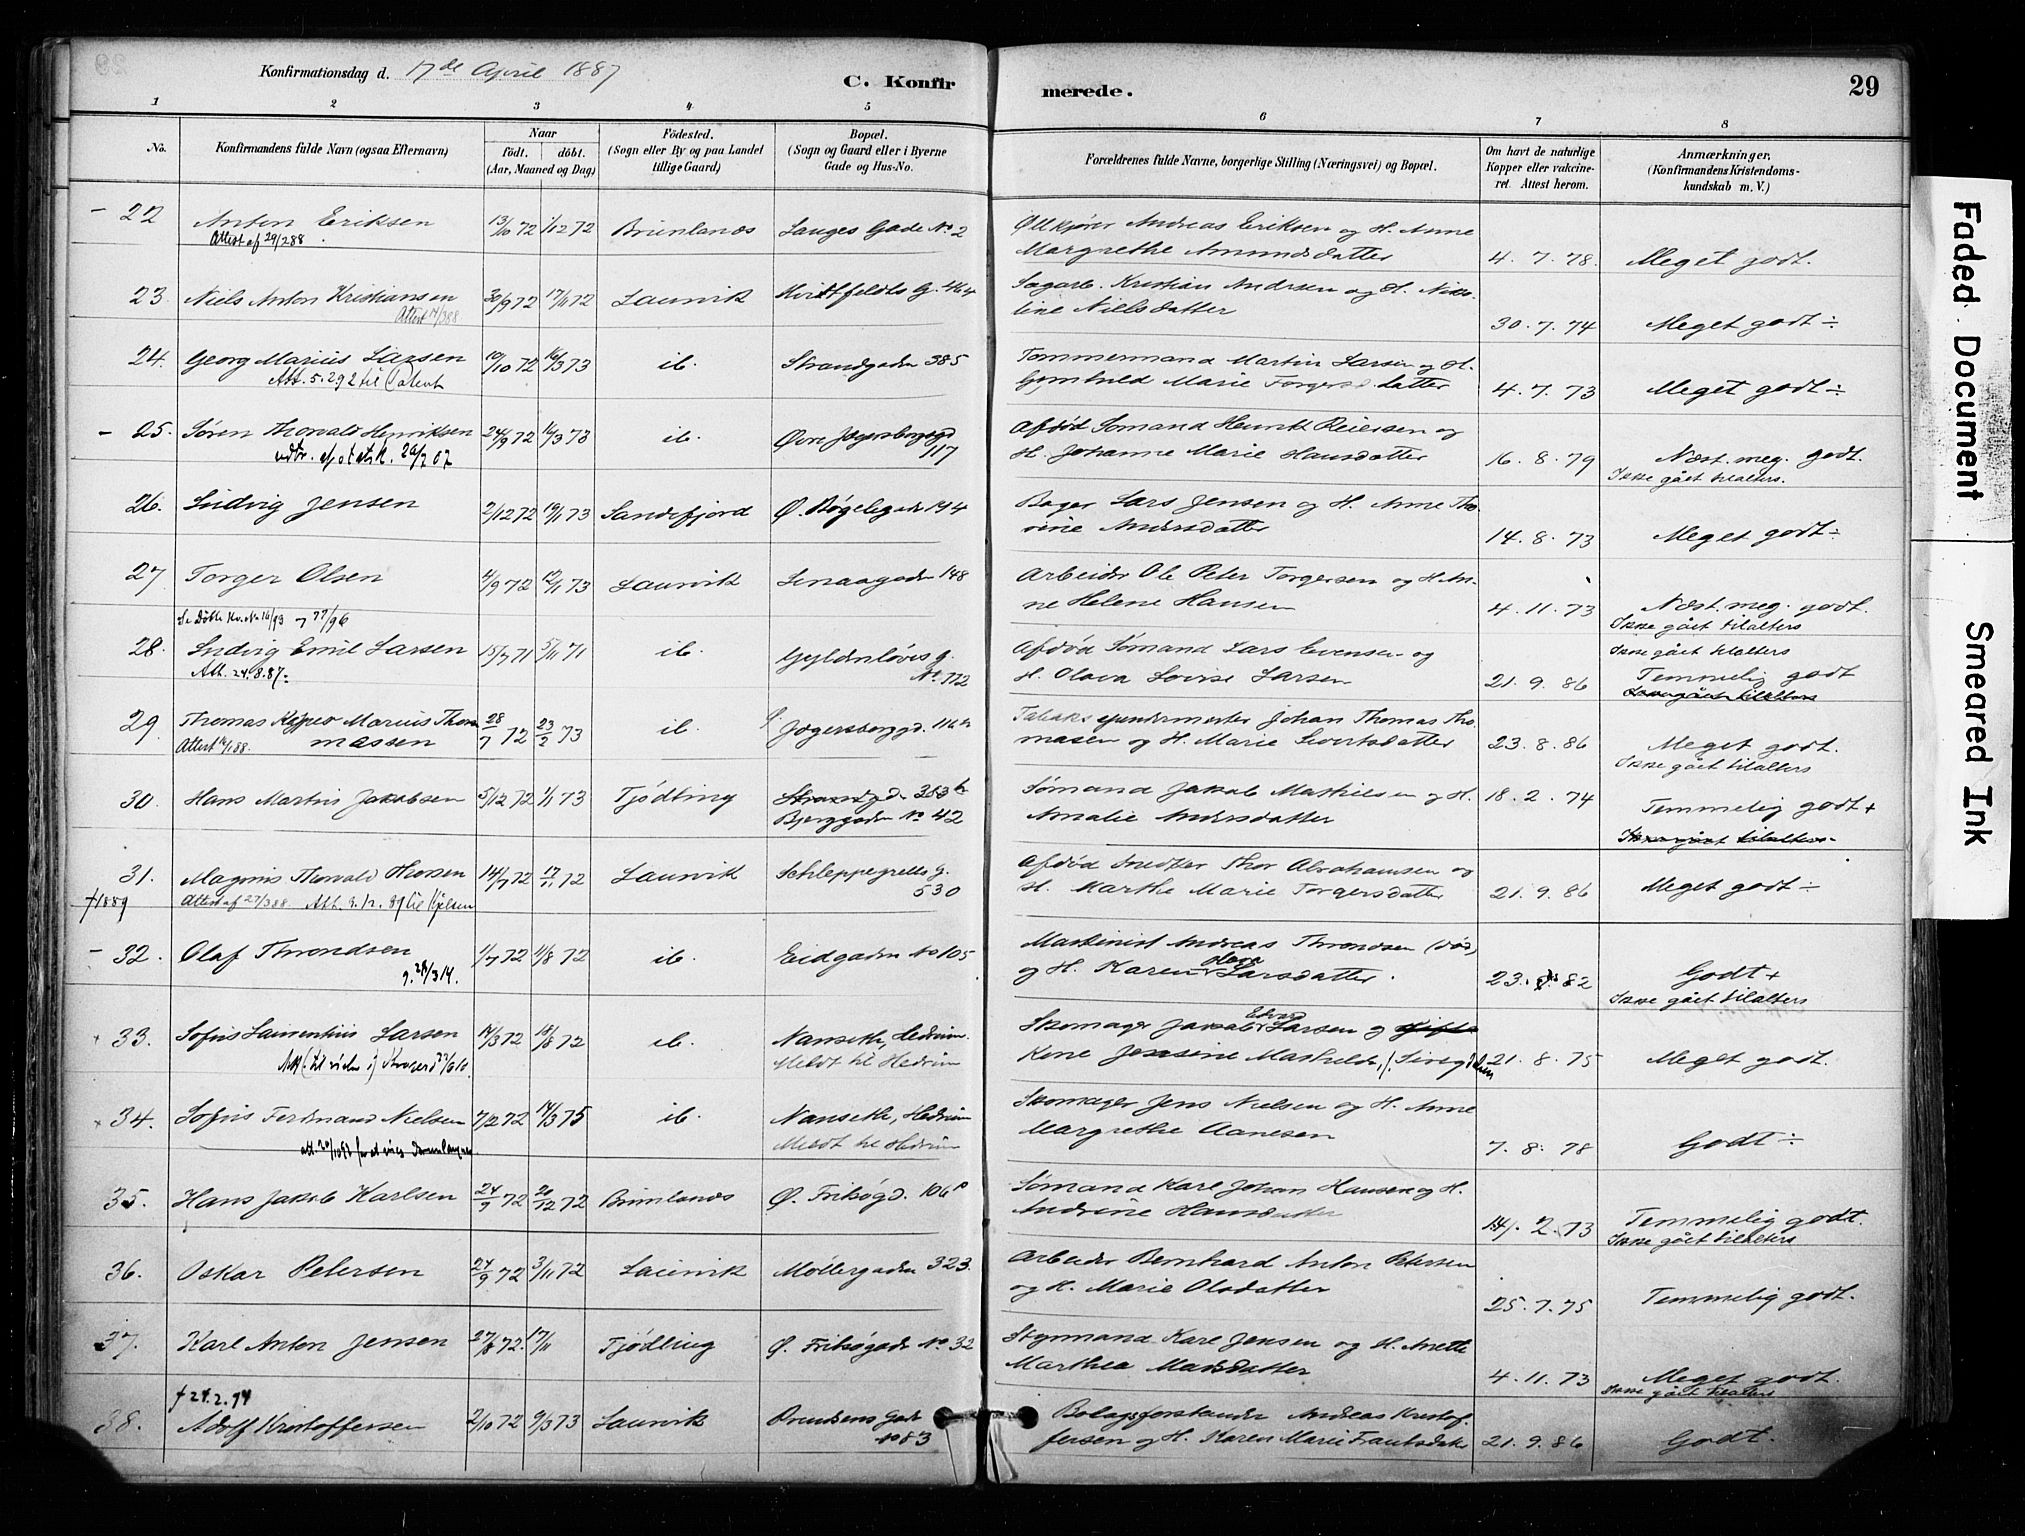 Konfirmationsdag d. 17de April 1887
C. Konfirmerede.
29
1 2 3 4 5 6 7 8
No.
Konfirmandens fulde Navn (ogsaa Efternavn)
Naar født. døbt. (Aar, Maaned og Dag)
Födested. (Sogn eller By og paa Landet tillige Gaard)
Bopæl. (Sogn og Gaard eller i Byerne Gade og Hus-No.
Forældrenes fulde Navne, borgerlige Stilling (Næringsvei) og Bopæl.
Om havt de naturlige Kopper eller vakcineret. Attest herom.
Anmærkninger. (Konfirmandens Kristendomskundskab m. V.)
22 Anton Eriksen 13/10 72 1/12 72 Brunlanes Lauges Gade No 2 Andreas Eriksen og H. Anne
Margrethe Amundsdatter 4. 7. 78. Meget godt.
23. Niels Anton Kristiansen 30/9 72 17/11 72 Laurvik G. 464 Sagarb. Kristian Andersen og H. Niko-
line Nielsdatter 30. 7. 74 Meget godt ÷
24. Georg Marius Larsen 10/10 72 16/3 73 ib. Strandgaden 385 Tømmermand Martin Larsen og H.
Gunhild Marie Torgersdatter 4. 7. 73 Meget godt ÷
25. Søren Thorvald Henriksen 24/9 72 16/3 73 ib. Øvre Jegersborggd 117 Afdød Sømand Henrik Reiersen og
H. Johanne Marie Hansdatter 16. 8. 79 Næst. meg. godt.
Ikke gået tilalters.
26. Ludvig Jensen 2/12 72 19/1 73 Sandefjord Ø. Bøgelegade 194 Bager Lars Jensen og H. Anne Tho-
rine Andersdatter 14. 8. 73 Meget godt ÷
27 Torger Olsen 4/9 72 12/1 73 Laurvik 148 Arbeider Ole Peter Torgersen og H. An-
ne Helene Hansen 4. 11. 73 Næst. meg. godt.
Ikke gået tilalters
28. Ludvig Emil Larsen 15/7 71 5/11 71 ib. Gyldenløves g. No 772 Afdød Sømand Lars Evensen og
Att. 24.8.87. H. Olava Lovise Larsen 21. 9. 86 Temmelig godt
29. Thomas Marius Thomassen 28/7 72 23/2 73 ib. Jegersborggd. 116 Johan Thomas Tho-
masen og H. Marie Sivertsdatter 23. 8. 86 Meget godt.
Ikke gået tilalters
30. Hans Martin Jakobsen 5/12 72 1/1 73 Tjødling Bjerggaden No 42 Sømand Jakob Mathisen og H.
Amalie Andersdatter 18. 2. 74 Temmelig godt +
31. Magnus Thorvald Thorsen 14/7 72 17/11 72 Laurvik Schleppegrells G. 530 Afdød Snedker Thor Abrahamsen og
† 1889 H. Marthe Marie Torgersdatter 21. 9. 86 Meget godt ÷
32. Olaf Throndsen 1/7 72 11/8 72 ib. Eidgaden No 105 Maskinist Andreas Throndsen (død)
og H. Karen Olava Larsdatter. 23. 82 Godt +
Ikke gået tilalters
33. Sofus Laurentius Larsen 14/3 72 18/8 72 ib. Nanseth, Hedrum. Skomager Jakob Edvard Larsen og
Meldt til Hedrum Kone Jensine Mathilde 21. 8. 75 Meget godt.
34. Sofus Ferdinand Nielsen 7/12 72 14/3 75 ib. Nanseth, Hedrum Skomager Jens Nielsen og H. Anne
Meldt til Hedrum Margrethe Aanesen 7. 8. 78 Godt ÷
35. Hans Jakob Karlsen 24/9 72 20/12 72 Brunlanes Ø. Friksøgd. 106 Sømand Karl Johan Hansen og H.
Andrine Hansdatter 14. 2. 73 Temmelig godt.
Ikke gået tilalters
36. Oskar Petersen 24/9 72 3/11 72 Laurvik Møllergaden 323. Arbeider Bernhard Anton Petersen
og H. Marie Olsdatter 25. 7. 75 Temmelig godt.
37. Karl Anton Jensen 27/8 72. 17/11 Tjødling Ø. Friksøgade No 32 Styrmand Karl Jensen og H. Anette
Marthea Madsdatter 4. 11. 73 Meget godt.
Ikke gået tilalters
† 24.2.94
38. Adolf Kristoffersen 2/10 72 9/3 73 Laurvik Prindsens Gade No 83 Andreas Kristof-
fersen og H. Karen Marie 21. 9. 86 Godt.
Faded Document
Smeared Ink